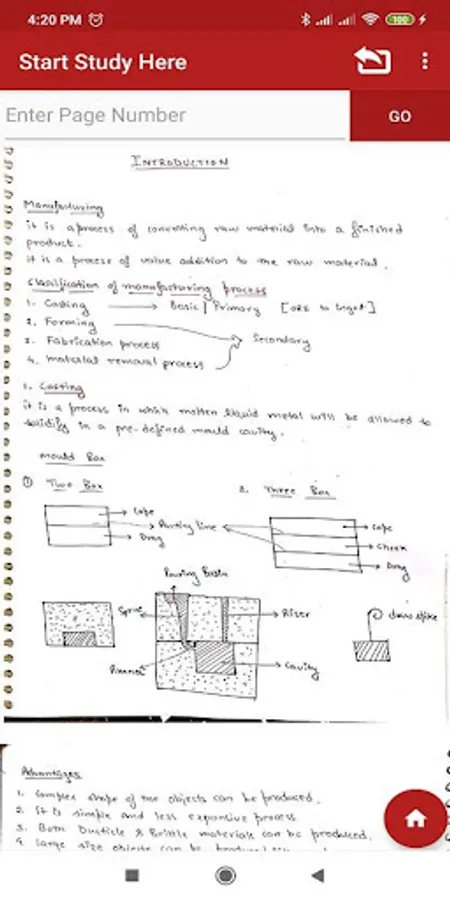 4:20 PM
100
Start Study Here
Enter Page Number
GO
INTRODUCTION
Manufacturing
it is a process of converting raw material into a finished
product.
it is a process of value addition to the raw material.
Classification of manufacturing process
1. Casting → Basic / Primary [ORE to Ingot]
2. Forming
Secondary
3. Fabrication process
4. material removal process
1. Casting
it is a process in which molten liquid metal will be allowed to
solidify in a pre-defined mould cavity.
mould Box
① Two Box
2. Three Box
Cope
Parting line
Drag
Cope
Cheek
Drag
Pouring Basin
Sprue
Riser
draw spike
Runner
Cavity
Advantages
1. Complex shape of the objects can be produced.
2. it is simple and less expensive process
3. Both Ductile & Brittle materials can be produced.
4. large size objects can be